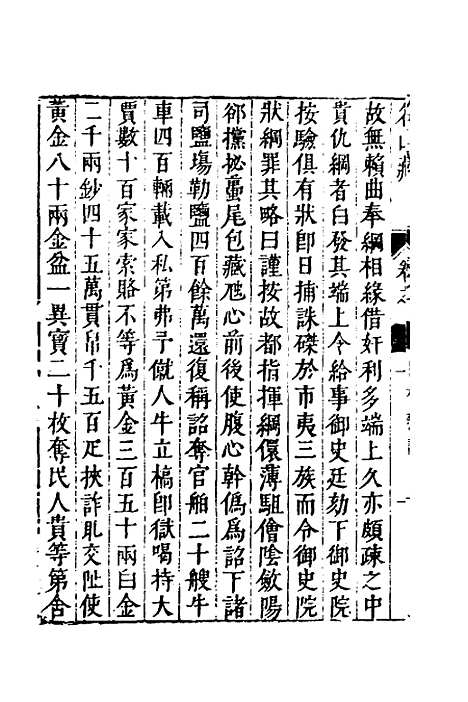 名山藏
卷之
故無賴曲奉綱相緣借奸利多端上久亦頗疎之中
貴仇綱者白發其端上令給事御史廷劾下御史院
按驗俱有狀卽日捕誅磔於市夷三族而令御史院
狀綱罪其略曰謹按故都指揮綱儇薄駔儈陰斂陽
邠攩祕蠆尾包藏虺心前後使腹心幹僞爲詔下諸
司鹽塲勒鹽四百餘萬還復稱詔奪官舶二十艘牛
車四百輛載入私第弗予僦人牛立槁卽獄喝持大
賈數十百家家索賂不等爲黃金三百五十兩白金
二千兩鈔四十五萬貫帛千五百疋挾詐䏚交阯使
黃金八十兩金盆一異寶二十枚奪民人貴等第舍